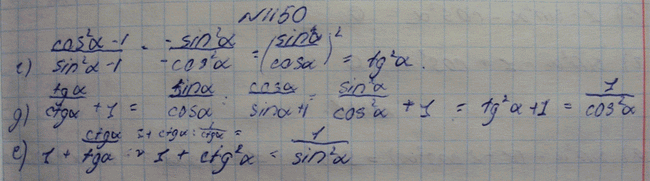 №1150
г) (cos²α - 1)/(sin²α - 1) = (-sin²α)/(-cos²α) = (sinα/cosα)² = tg²α.
д) tgα/ctgα + 1 = sinα/cosα : cosα/sinα+1 = sin²α/cos²α + 1 = tg²α + 1 = 1/cos²α
е) 1 + ctgα/tgα = 1 + ctgα : 1/ctgα = 1 + ctg²α = 1/sin²α